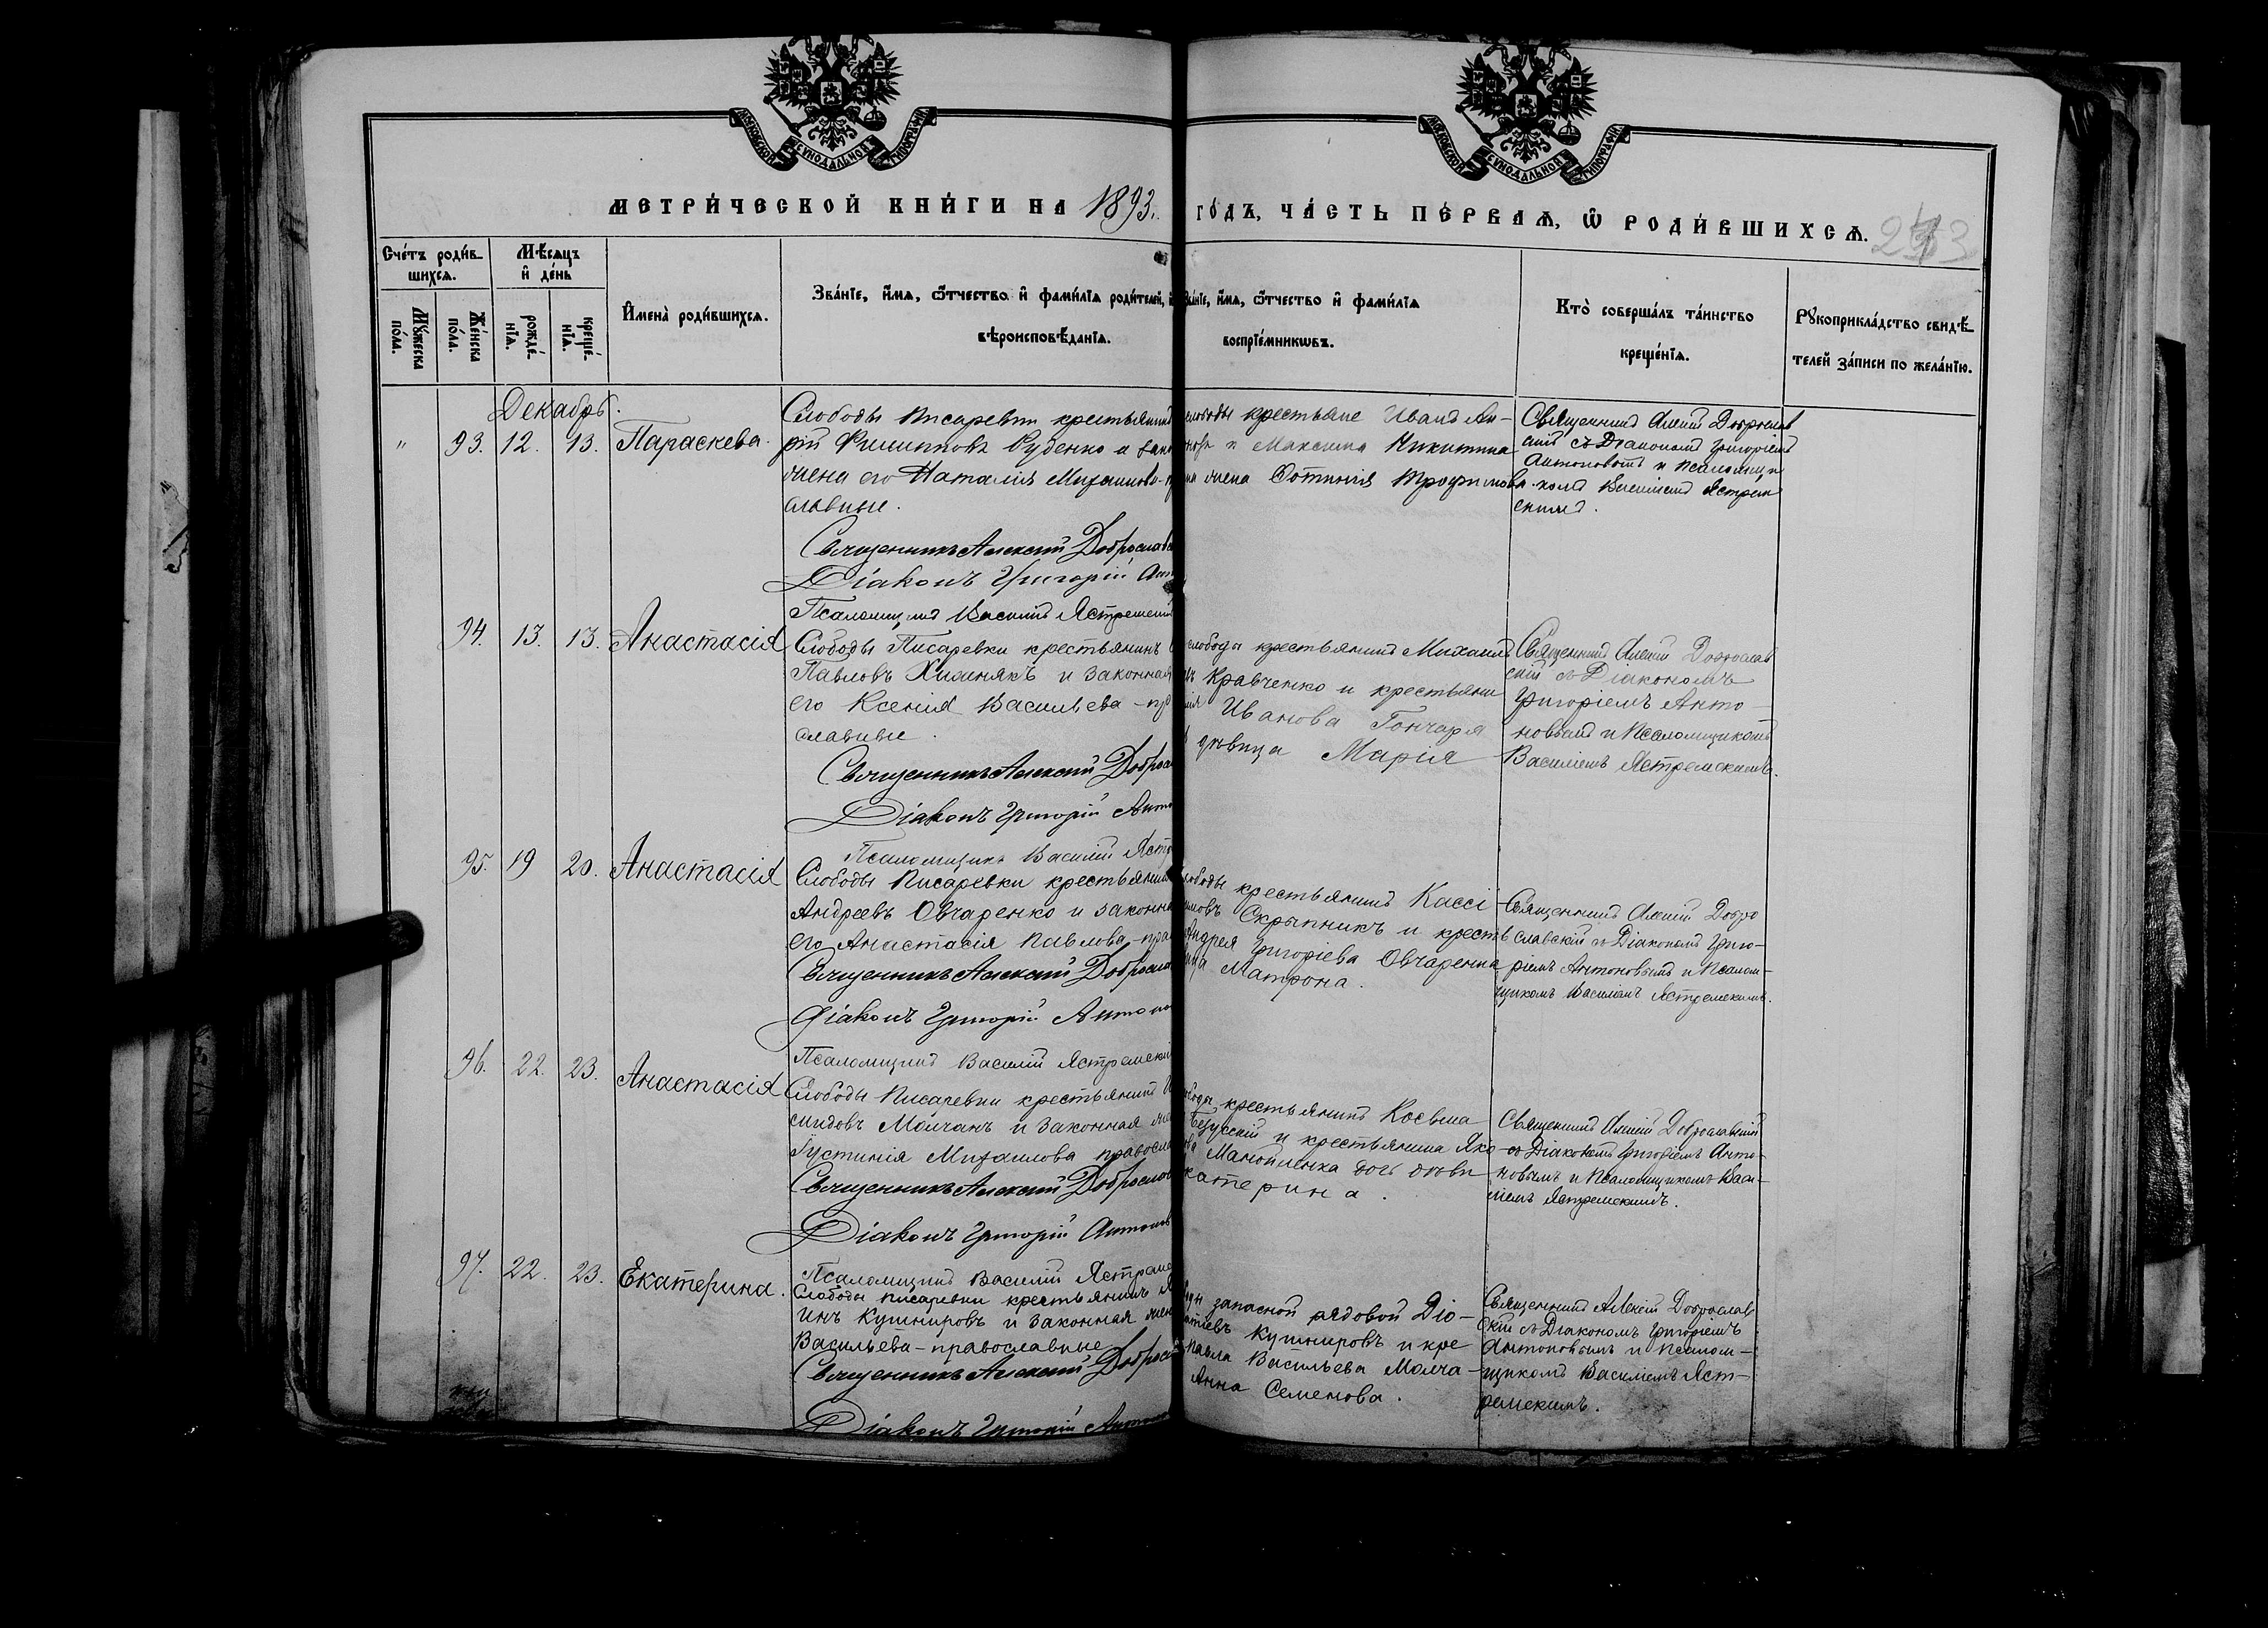 МОСКОВСКОЙ СѴНОДАЛЬНОЙ ТИПОГРАФІИ
МОСКОВСКОЙ СѴНОДАЛЬНОЙ ТИПОГРАФІИ
МЕТРИ́ЧЕСКОЙ КНИ́ГИ НА 1893.
ГО́ДЪ, ЧА́СТЬ ПЕ́РВАѦ, Ѽ РОДИ́ВШИХСѦ.
Сче́тъ роди́в-
шихсѧ.
Мѣ́сѧцъ
и҆ де́нь
Мꙋ́жеска
по́ла.
Же́нска
по́ла.
рожде́-
нїѧ.
креще́-
нїѧ.
И҆мена̀ роди́вшихсѧ.
Зва́нїе, и҆́мѧ, ѻ҆́тчество и҆ фами́лїѧ роди́телей,
вѣроисповѣ́данїѧ.
Зва́нїе, и҆́мѧ, ѻ҆́тчество и҆ фами́лїѧ
воспрїе́мникѡвъ.
Кто̀ соверша́лъ та́инство
креще́нїѧ.
Рꙋкоприкла́дство свидѣ́-
телей за́писи по жела́нїю.
Декабрь.
" 93. 12. 13. Параскева.
Слободы Писаревки крестьянинъ
рій Филипповъ Руденко и зако
жена его Наталія Михаилова-п
славные.
Священникъ Алексій Доброслав
Діаконъ Григорій Ант
Псаломщикъ Василій Ястремскій
слободы крестьяне Иванъ Ан-
и Максима Никитина
жена Фотинія Трофимова.
Священникъ Алексій Доброслав
скій съ Діакономъ Григоріемъ
Антоновымъ и Псаломщи
комъ Василіемъ Ястрем
скимъ.
94. 13. 13. Анастасія
Слободы Писаревки крестьянинъ
Павловъ Хижнякъ и законная
его Ксенія Васильева-пра
славные.
Священникъ Алексій Доброс
Діаконъ Григорій Анто
Псаломщикъ Василій Ястр
слободы крестьянинъ Михаилъ
Кравченко и крестьяни
Иванова Гончаря
дѣвица Марія
Священникъ Алексій Доброслав
скій съ Діакономъ
Григоріемъ Анто-
новымъ и Псаломщикомъ
Василіемъ Ястремскимъ.
95. 19 20. Анастасія
Слободы Писаревки крестьянинъ
Андреевъ Овчаренко и законна
его Анастасія Павлова-пра
Священникъ Алексій Доброслав
Діаконъ Григорій Антоно
Псаломщикъ Василій Ястремскій
слободы крестьянинъ Кассі-
Скрыпникъ и крестья
Андрея Григоріева Овчаренка
Матрона.
Священникъ Алексій Добро
славскій съ Діакономъ Григо-
ріемъ Антоновымъ и Псалом-
щикомъ Василіемъ Ястремскимъ.
96. 22. 23. Анастасія
Слободы Писаревки крестьянинъ
сидовъ Молчанъ и законная же
Іустинія Михаилова правосла
Священникъ Алексій Доброслав
Діаконъ Григорій Антонов
Псаломщикъ Василій Ястрем
крестьянинъ Косьма
и крестьянина Яко-
Манойленка дочь дѣви
катерина.
Священникъ Алексій Доброславскій
съ Діакономъ Григоріемъ Анто-
новымъ и Псаломщикомъ Васи-
ліемъ Ястремскимъ.
97. 22. 23. Екатерина.
Слободы Писаревки крестьянинъ
инъ Кушнировъ и законная жен
Васильева-православные
Священникъ Алексій Доброс
Діаконъ Григорій Антон
запасной рядовой Діо-
Кушнировъ и кре
Павла Васильева Молча-
Анна Семенова.
Священникъ Алексій Доброслав
скій съ Діакономъ Григоріемъ
Антоновымъ и Псалом-
щикомъ Василіемъ Яст-
ремскимъ.